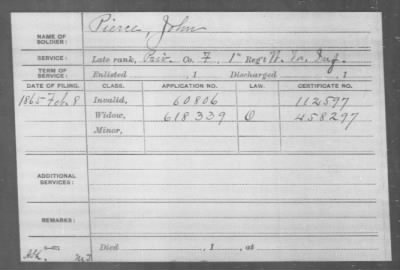 NAME OF SOLDIER: Pierce, John
SERVICE: Late rank, Priv. Co. F, 1" Reg't W. Va. Inf.
TERM OF SERVICE: Enlisted , 1 Discharged , 1
DATE OF FILING. CLASS. APPLICATION NO. LAW. CERTIFICATE NO.
1865 Feb. 8 Invalid, 60806 112597
Widow, 618339 O 458297
Minor,
ADDITIONAL SERVICES:
REMARKS:
Died , 1 , at